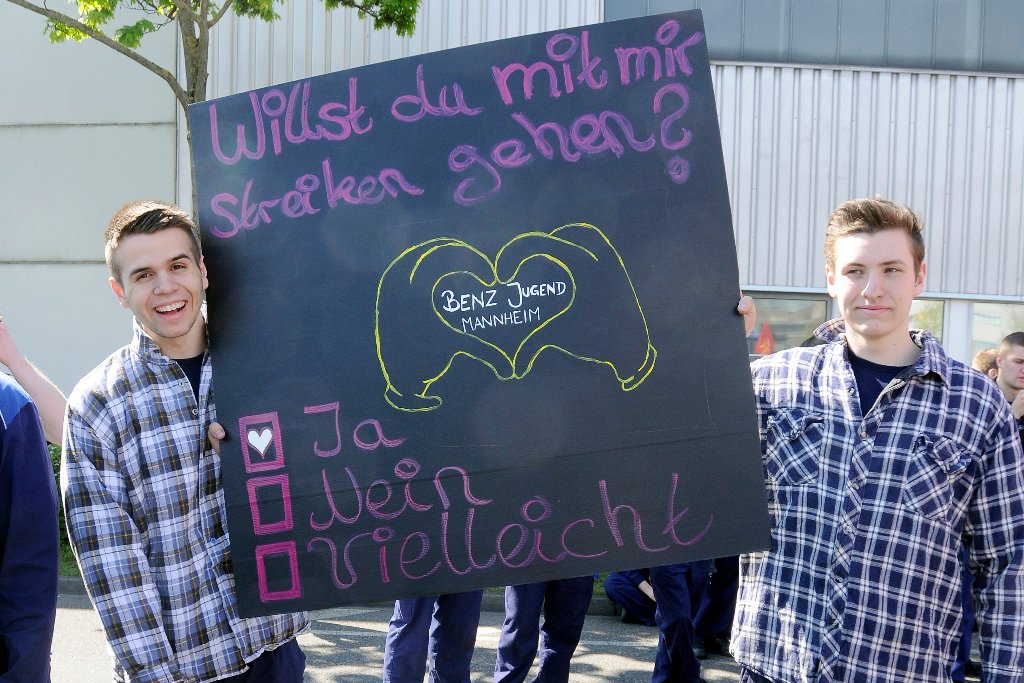 Willst du mit mir
streiken gehen?
BENZ JUGEND
MANNHEIM
Ja
Nein
Vielleicht